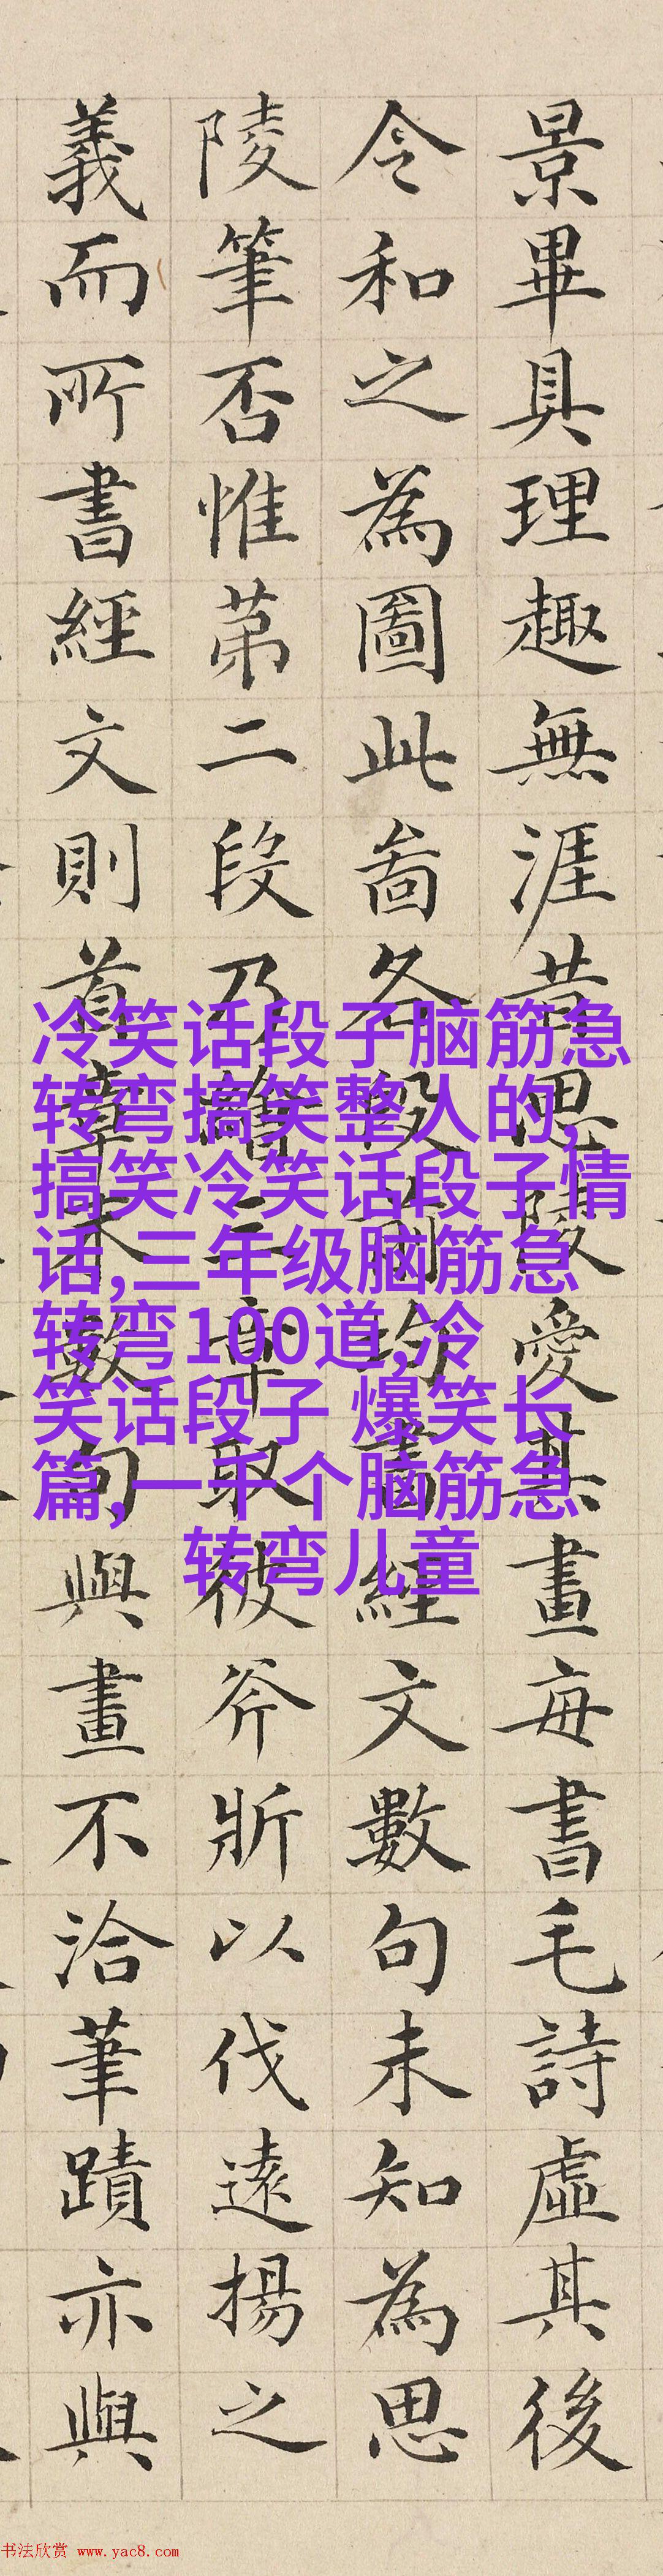 景畢具理趣無涯昔思陵愛其畫每書毛詩虛其後
令和之為圖此啚各段均書經文數句未知為思
陵筆否惟苐二段乃繪三章取彼斧斨以伐遠揚之
義而所書經文則首章末數句與畫不洽筆蹟亦與
冷笑话段子脑筋急
转弯搞笑整人的,
搞笑冷笑话段子情
话,三年级脑筋急
转弯100道,冷
笑话段子 爆笑长
篇,一千个脑筋急
转弯儿童
书法欣赏 www.yac8.com